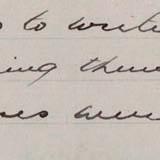 s to write
ing them
es were